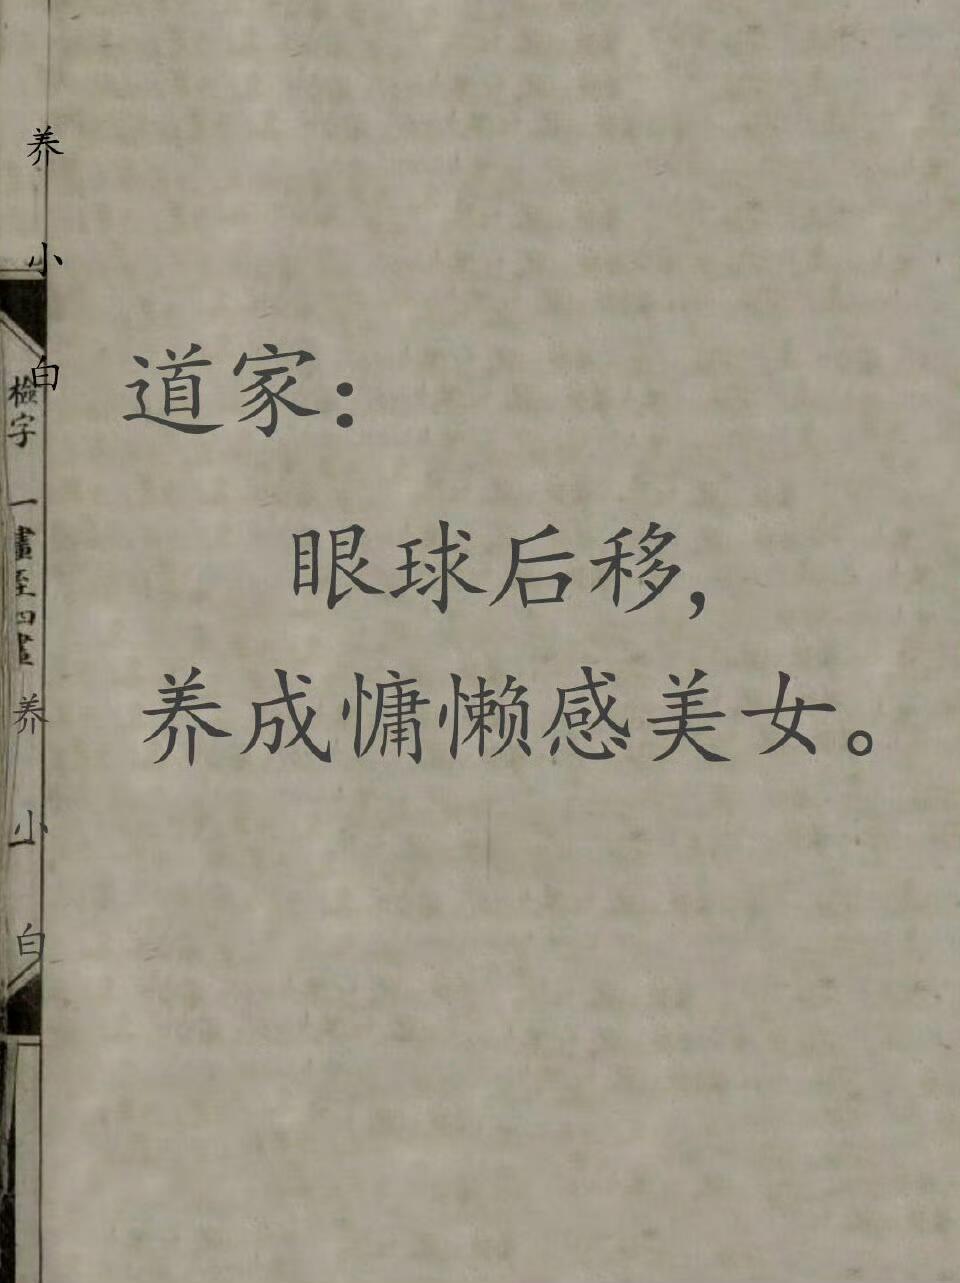 养小白
檢字 一畫至四畫
养小白
道家：
眼球后移，
养成慵懒感美女。